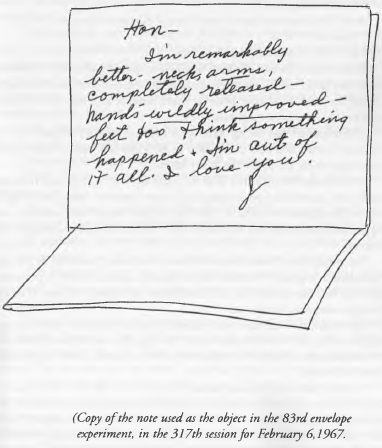 Hon—
I'm remarkably
better- neck, arms,
completely released—
hands wildly improved—
feet too think something
happened + I'm out of
it all. I love you.
J
(Copy of the note used as the object in the 83rd envelope
experiment, in the 317th session for February 6,1967.